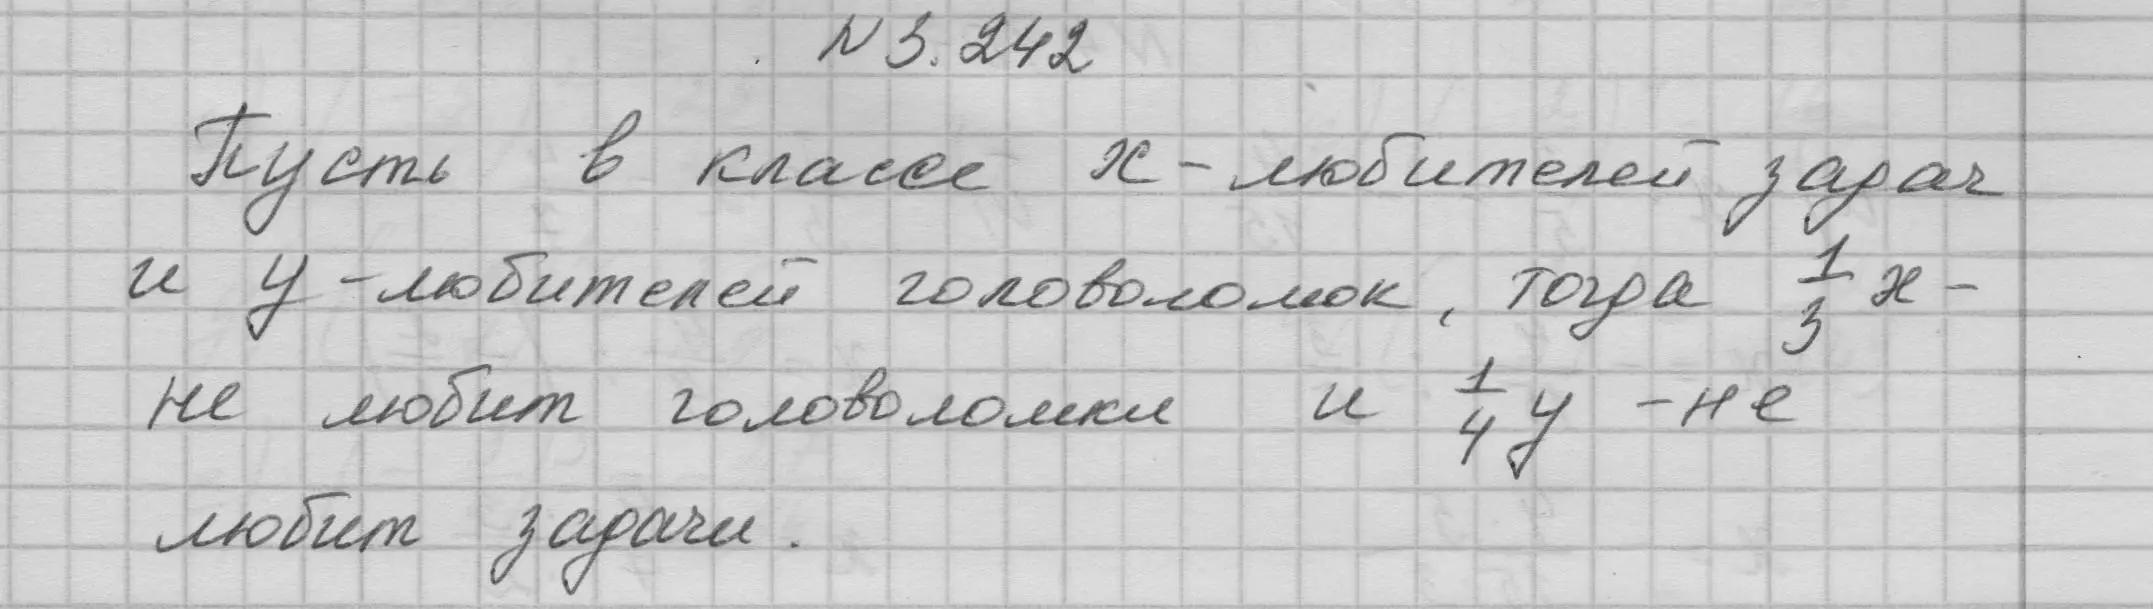 N 3.242
Пусть в классе x - любителей задач
и y - любителей головоломок, тогда 1/3 x -
не любит головоломки и 1/4 y - не
любит задачи.